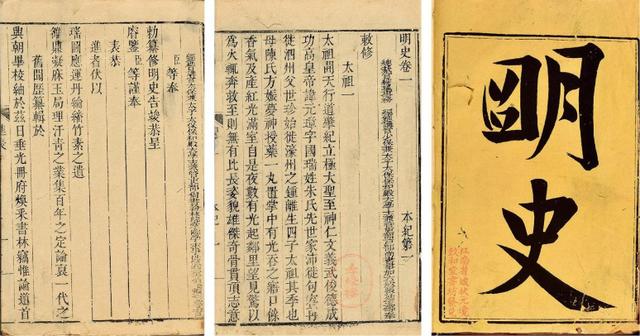 明史
明史卷一 本紀第一
敕修
太祖一
太祖開天行道肇紀立極大聖至神仁文義武俊德成
功高皇帝諱元璋字國瑞姓朱氏先世家沛徙句容再
徙泗州父世珍始徙濠州之鍾離生四子太祖其季也
母陳氏方娠夢神授藥一丸置掌中有光吞之寤口餘
香氣及產紅光滿室自是夜數有光起鄰里望見驚以
為火輒奔救至則無有比長姿貌雄傑奇骨貫頂志意
臣等奉
勅纂修明史告竣恭呈
御鑒臣等謹奉
表恭
進者伏以
瑤圖應運丹綸竹素之遺
鼎凝庥玉局理汗青之業集百年之定論裒一代之
舊聞歷纂輯於
興朝畢校紬於茲日垂光冊府煥采書林竊惟論道首